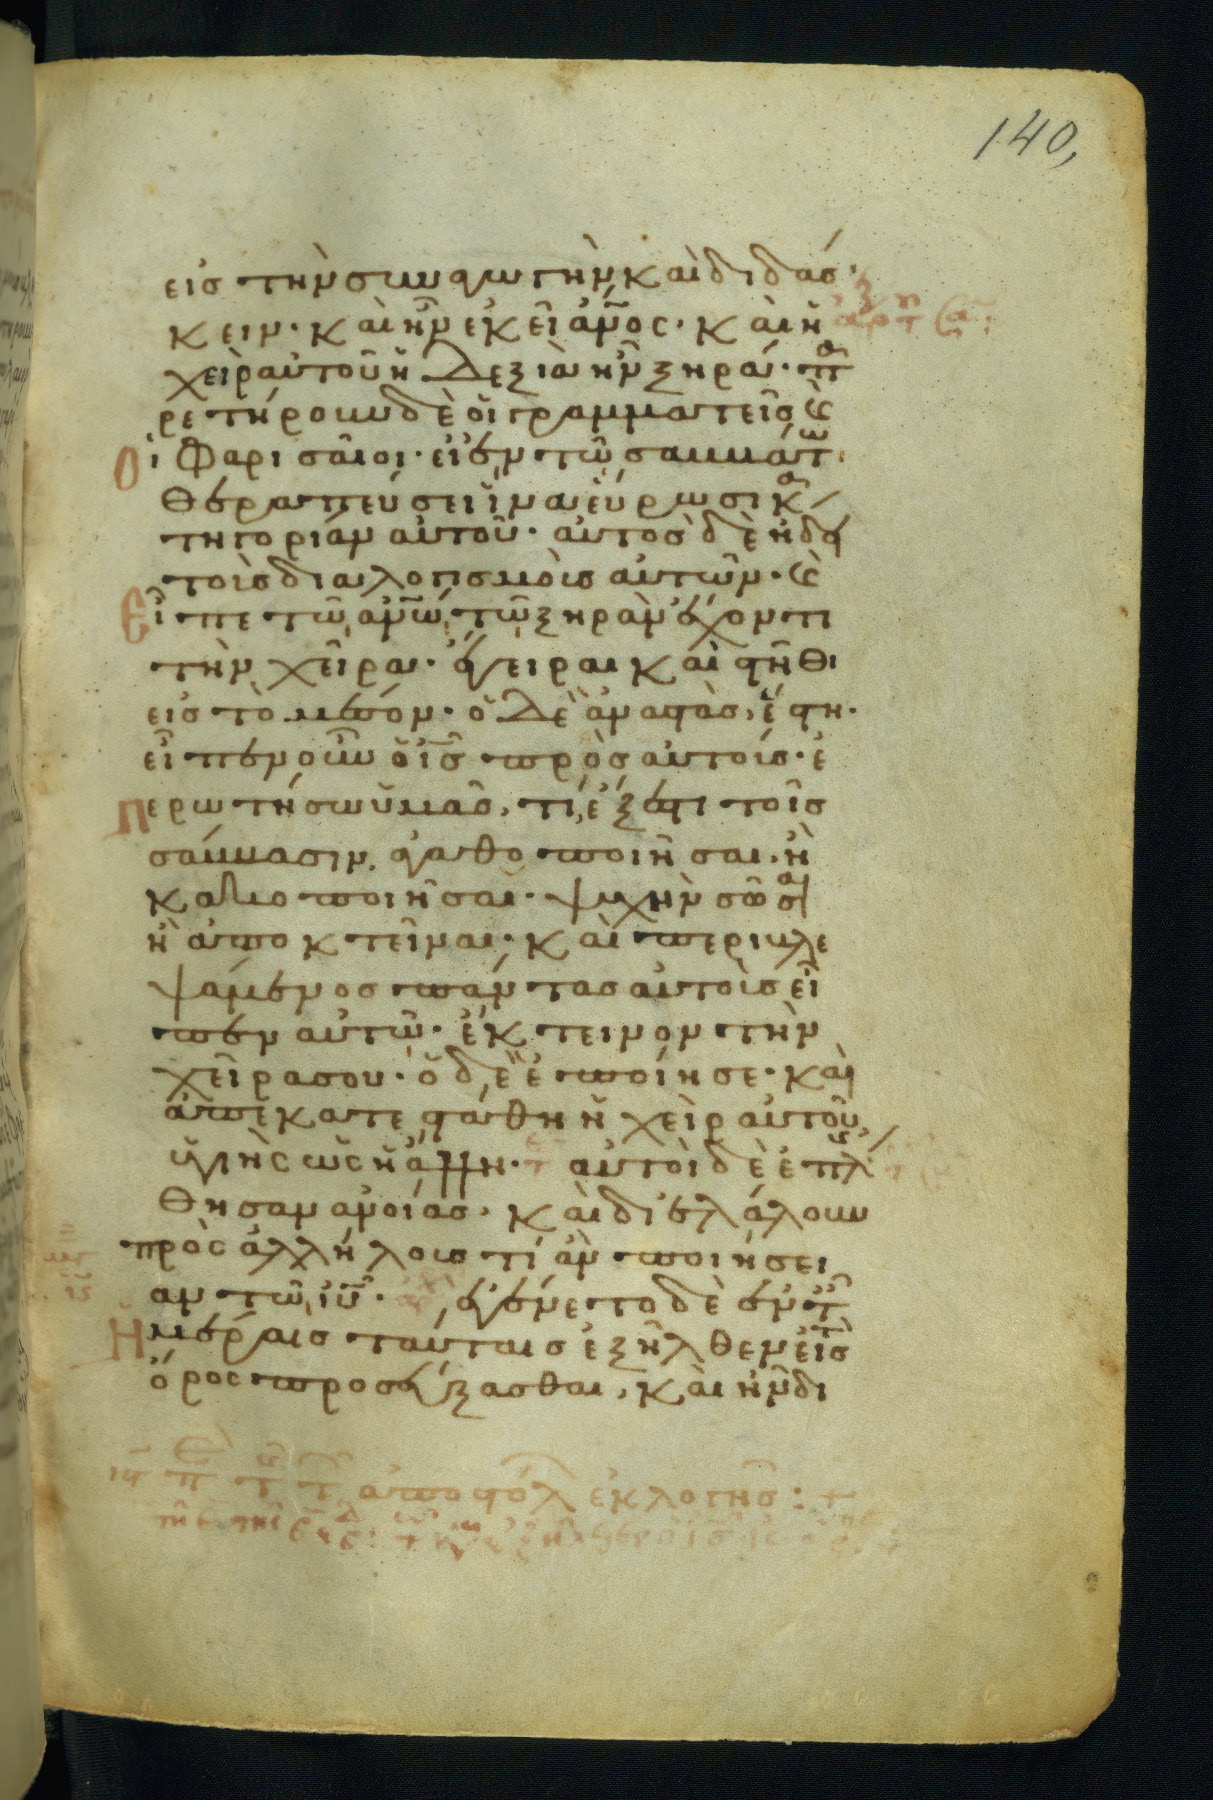 140,
εἰς τὴν συναγωγὴν καὶ διδάσ
κειν· καὶ ἦν ἐκεῖ ἄνος· καὶ ἡ
χεὶρ αὐτοῦ ἡ δεξιὰ ἦν ξηρά· πα
ρετήρουν δὲ οἱ γραμματεῖς καὶ
οἱ Φαρισαῖοι· εἰ ἐν τῶ σαββάτω
θεραπεύσει ἵνα εὕρωσι κα
τηγορίαν αὐτοῦ· αὐτὸς δὲ ἤδει
τοὺς διαλογισμοὺς αὐτῶν· καὶ
εἶπε τῶ ἀνῶ τῶ ξηρὰν ἔχοντι
τὴν χεῖρα· ἔγειραι καὶ στῆθι
εἰς τὸ μέσον· ὁ δὲ ἀναστὰς, ἔστη·
εἶπεν οὖν ὁ ις πρὸς αὐτούς· ἐ
περωτήσω ὑμᾶς, τί ἔξεστι τοῖς
σάββασιν, ἀγαθοποιῆσαι, ἢ
κακοποιῆσαι· ψυχὴν σῶσαι
ἢ ἀποκτεῖναι· καὶ περιβλε
ψάμενος πάντας αὐτοὺς εἶ
πεν αὐτῶ· ἔκτεινον τὴν
χεῖρα σου· ὁ δὲ ἐποίησε· καὶ
ἀπεκατεστάθη ἡ χεὶρ αὐτοῦ
ὑγιὴς ὡς ἡ ἄλλη· αὐτοὶ δὲ ἐπλή
σθησαν ἀνοίας· καὶ διελάλουν
πρὸς ἀλλήλους τί ἂν ποιήσει
αν τῶ ιυ· ἐγένετο δὲ ἐν ταῖς
ἡμέραις ταύταις ἐξῆλθεν εἰς τὸ
ὄρος προσεύξασθαι, καὶ ἦν δι
ἀποστόλ ἐκλογῆς: